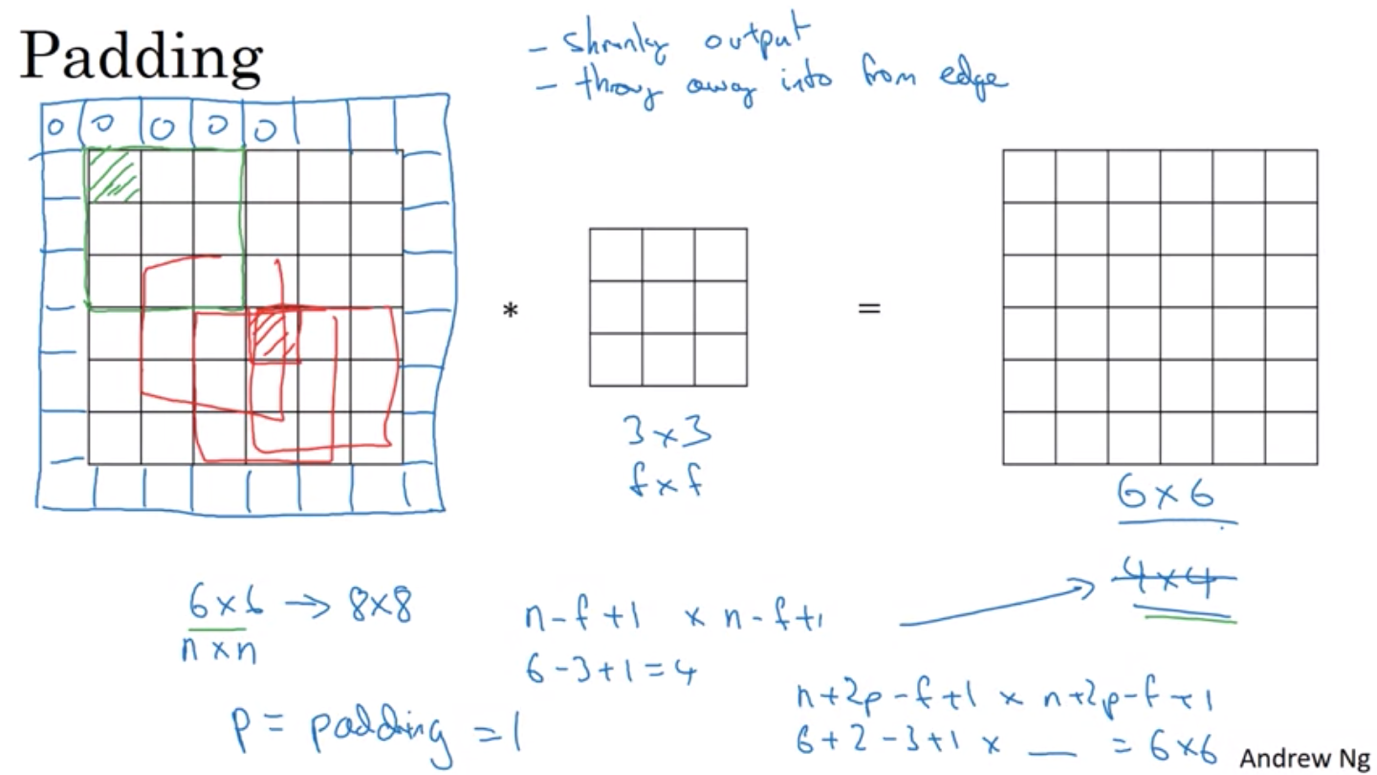 Padding
- shrinky output
- throy away info from edge
0 0 0 0 0
*
=
3×3
f×f
6×6
4×4
6×6 → 8×8
n×n
n-f+1 × n-f+1
6-3+1=4
p = padding = 1
n+2p-f+1 × n+2p-f+1
6+2-3+1 × __ = 6×6
Andrew Ng